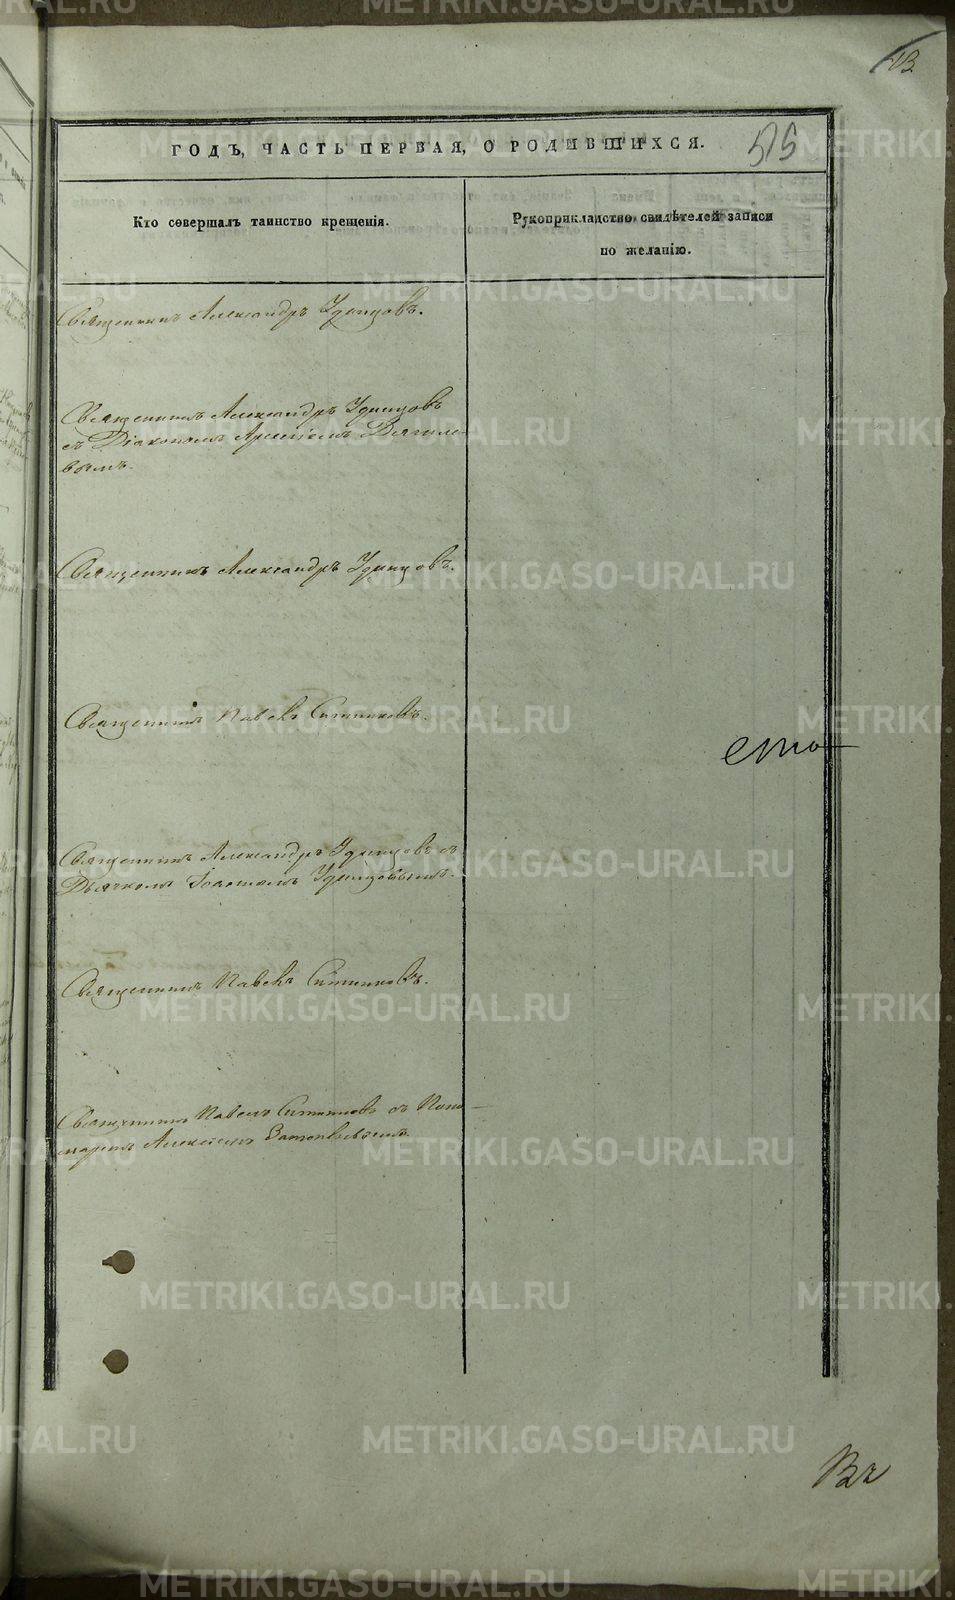 13.
ГОДЪ, ЧАСТЬ ПЕРВАЯ, О РОДИВШИХСЯ.
515
Кто совершалъ таинство крещенія.
Рукоприкладство свидѣтелей записи
по желанію.
Священникъ Александръ Удинцовъ.
Священникъ Александръ Удинцовъ
съ Діакономъ Арсеніемъ Дягиле-
вымъ.
Священникъ Александръ Удинцовъ.
Священникъ Павелъ Ситниковъ.
сто
Священникъ Александръ Удинцовъ съ
Дьячкомъ Іоанномъ Удинцовымъ.
Священникъ Павелъ Ситниковъ.
Священникъ Павелъ Ситниковъ съ Поно-
маремъ Алексѣемъ
METRIKI.GASO-URAL.RU